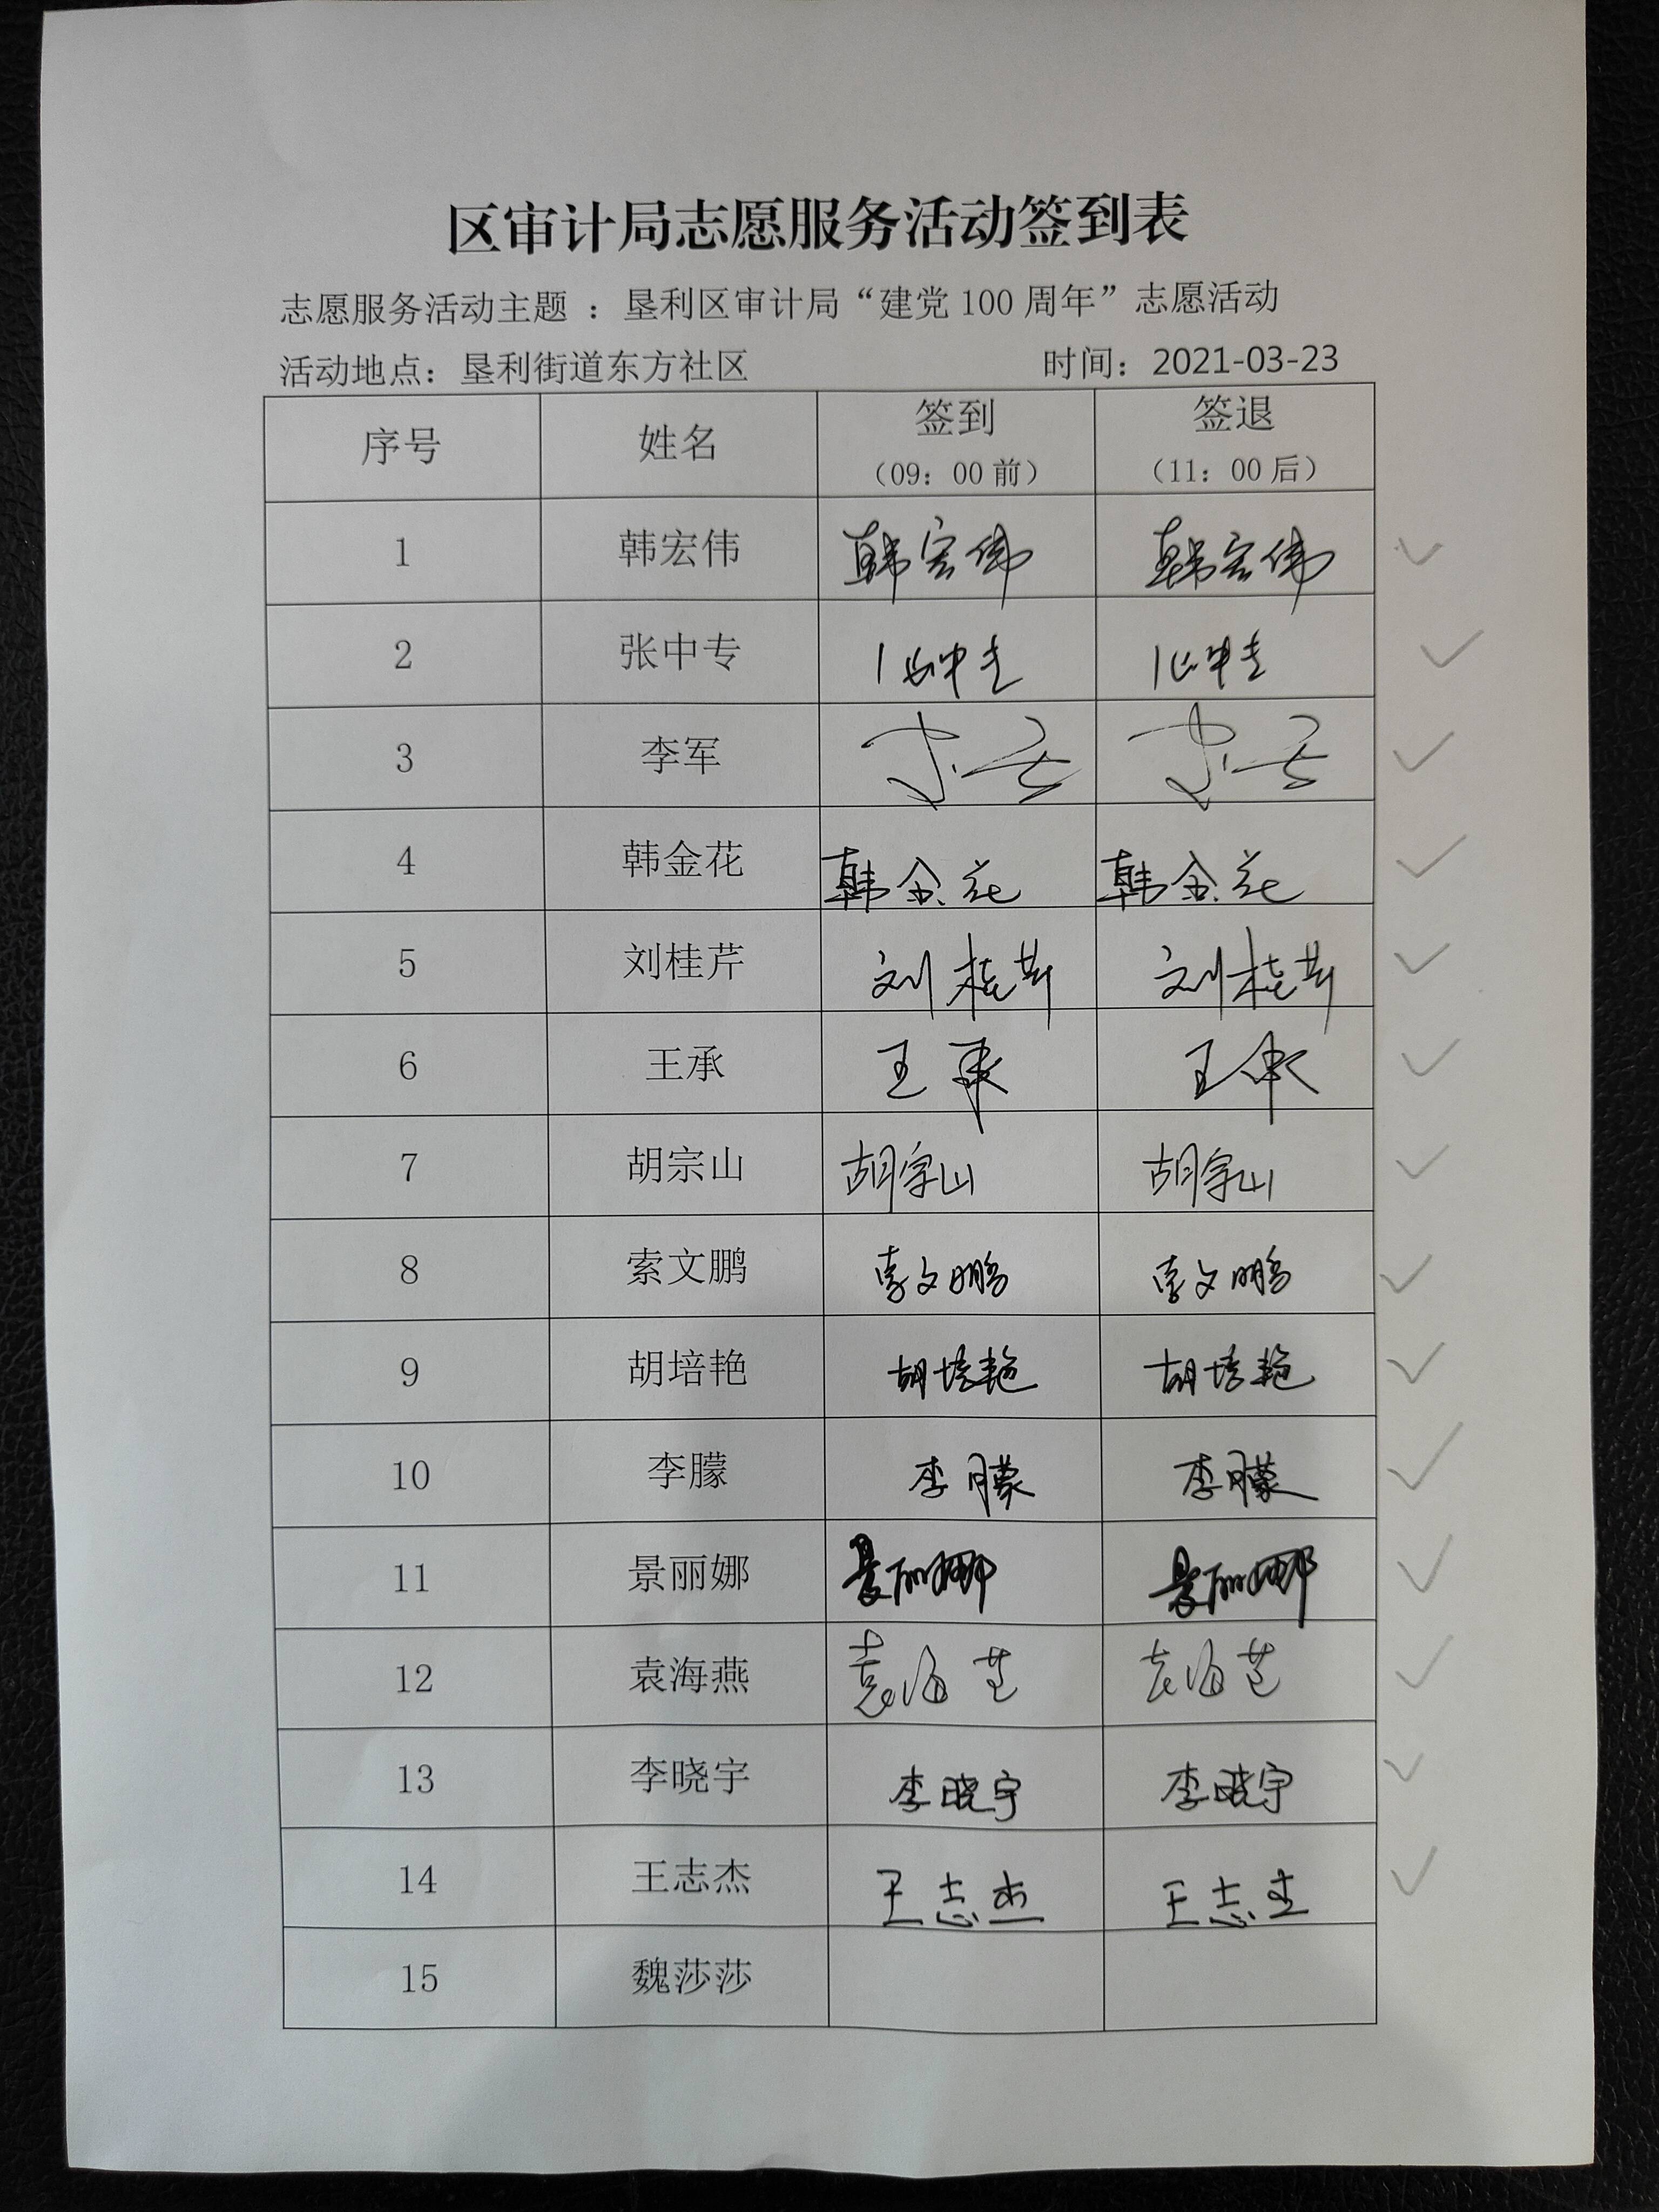 区审计局志愿服务活动签到表
志愿服务活动主题 ：垦利区审计局“建党 100 周年”志愿活动
活动地点：垦利街道东方社区 时间：2021-03-23
序号 姓名 签到 签退
（09：00 前） （11：00 后）
1 韩宏伟 韩宏伟 韩宏伟
2 张中专 张中专 张中专
3 李军 李军 李军
4 韩金花 韩金花 韩金花
5 刘桂芹 刘桂芹 刘桂芹
6 王承 王承 王承
7 胡宗山 胡宗山 胡宗山
8 索文鹏 索文鹏 索文鹏
9 胡培艳 胡培艳 胡培艳
10 李朦 李朦 李朦
11 景丽娜 景丽娜 景丽娜
12 袁海燕 袁海燕 袁海燕
13 李晓宇 李晓宇 李晓宇
14 王志杰 王志杰 王志杰
15 魏莎莎